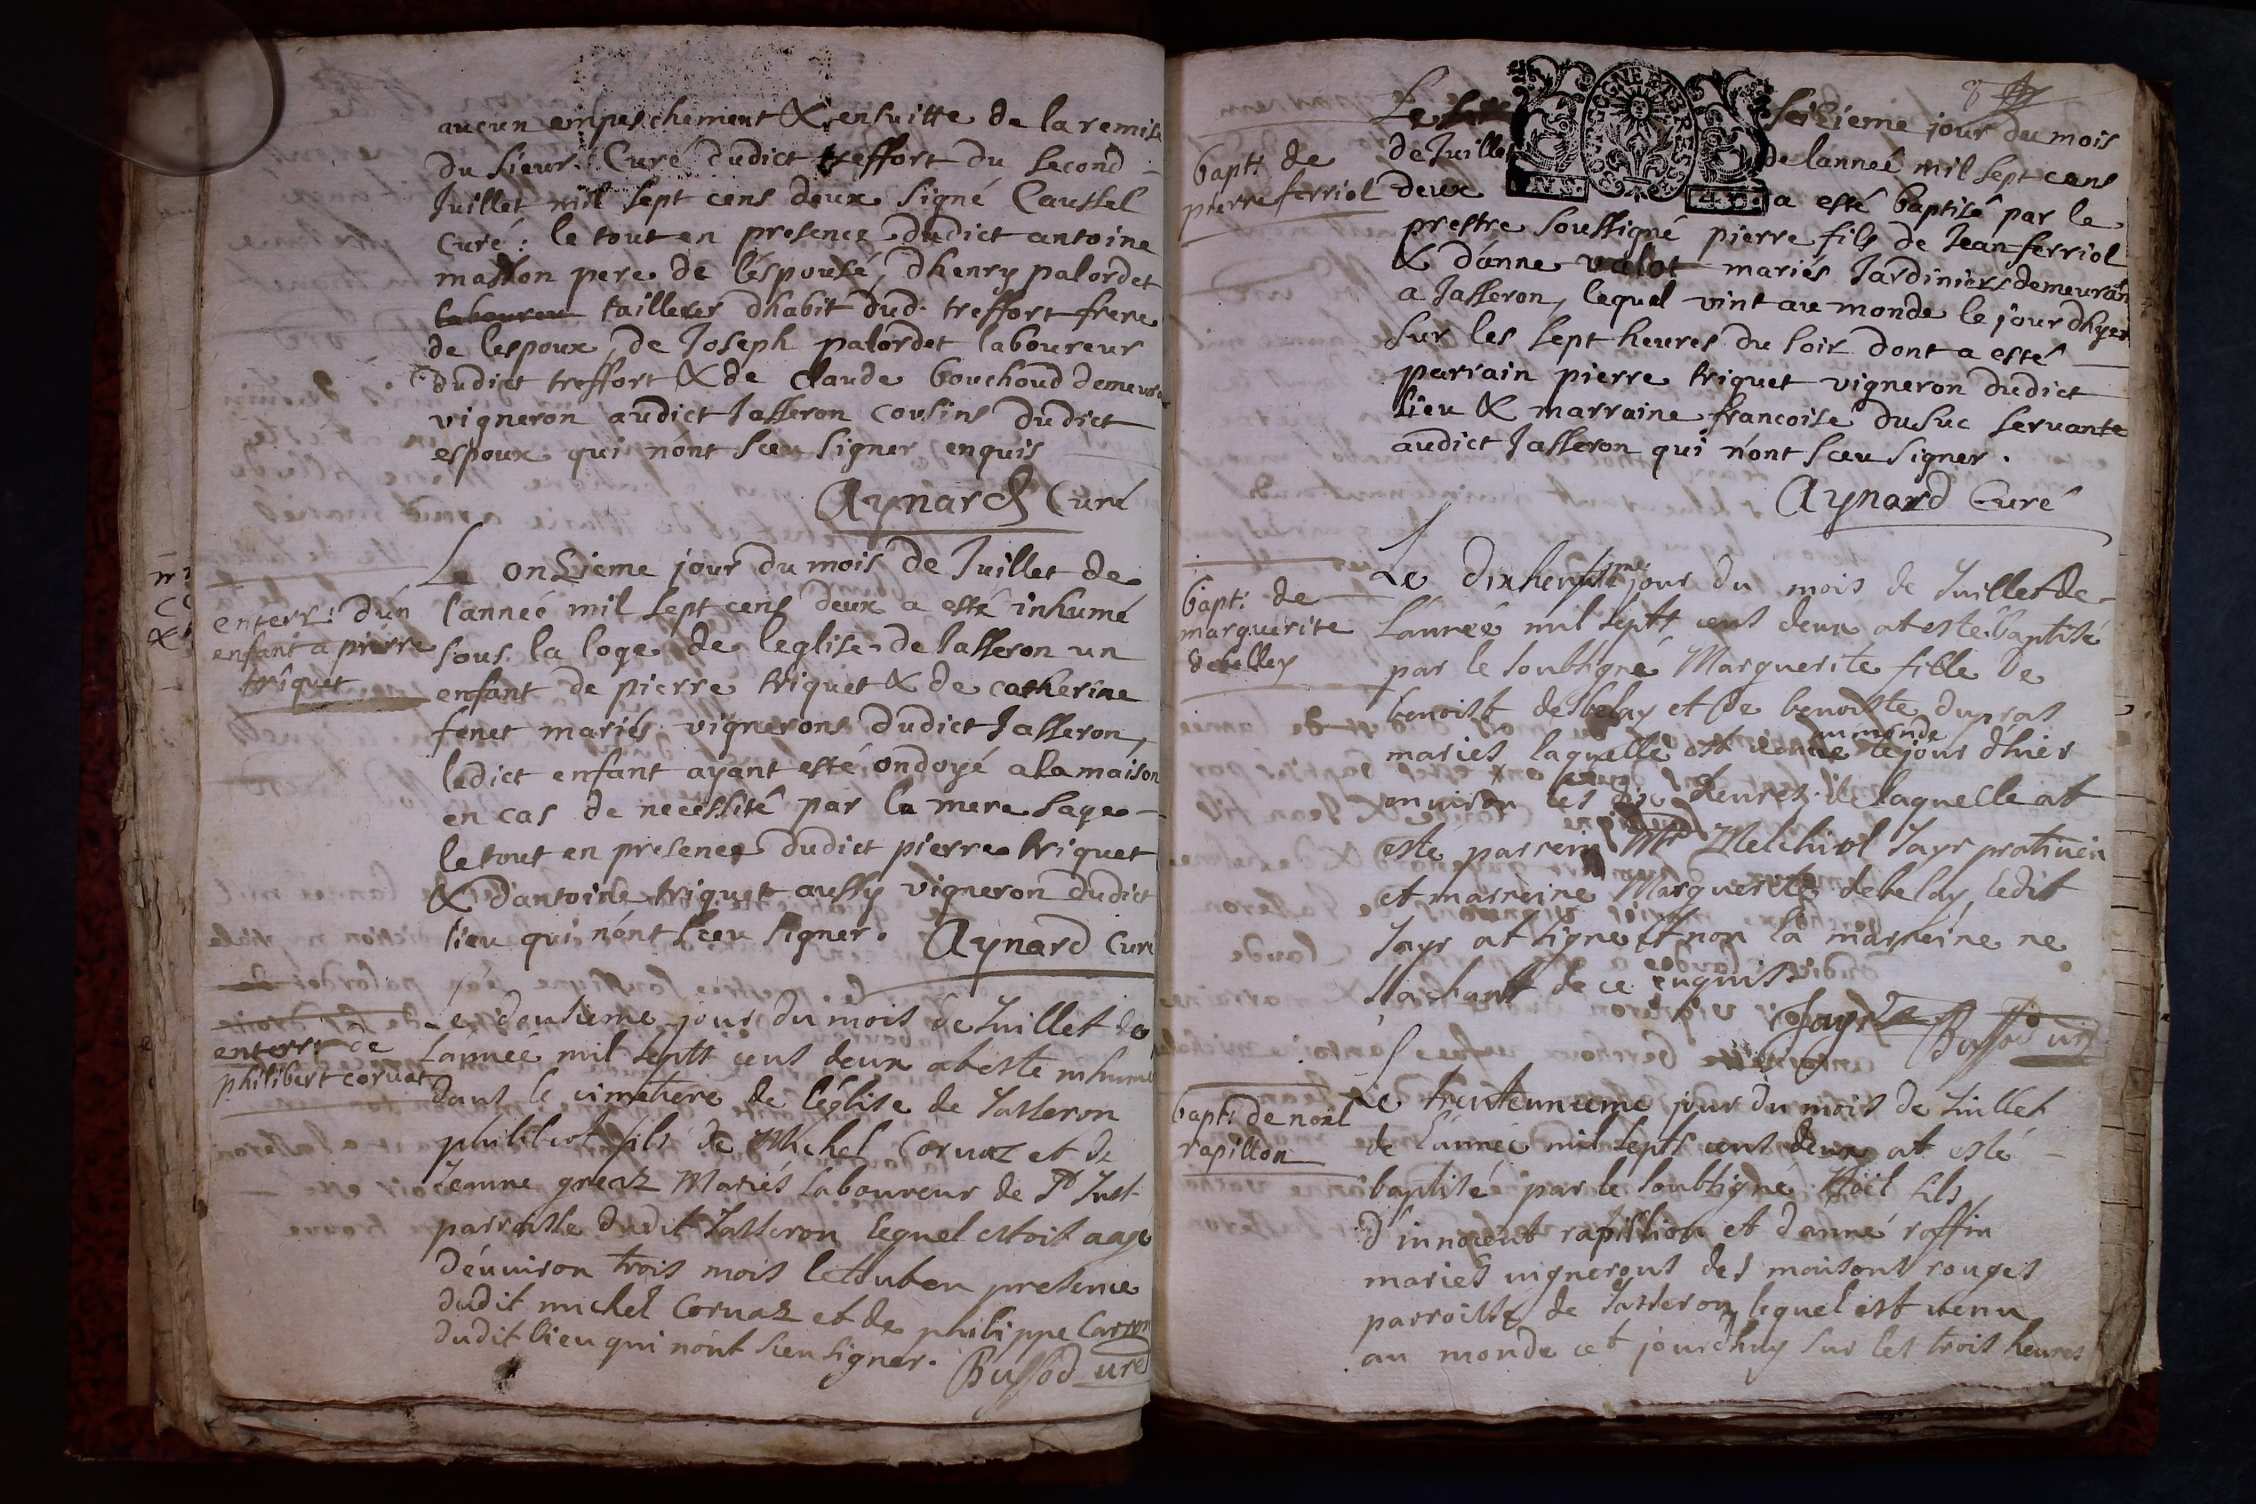 aucun empeschement & ensuitte de la remise
du sieur Curé dudict treffort du second
Juillet mil sept cens deux signé Caussel
Curé : le tout en presence dudict antoine
masson pere de léspousé, dhenry palordet
laboureur tailleur dhabit dud. treffort frere
de lespoux, de Joseph palordet laboureur
dudict treffort & de claude bouchoud demeurant
vigneron audict Jasseron cousins dudict
espoux qui nónt sceu signer enquis
Aynard Curé
enterr: dún
enfant a pierre
triquet
Le onzieme jour du mois de Juillet de
lanneé mil sept cens deux a esté inhumé
sous la loge de leglise de Jasseron un
enfant de pierre triquet & de catherine
fenet mariés vignerons dudict Jasseron,
ledict enfant ayant esté ondoyé a la maison
en cas de necessité par la mere sage
le tout en presence dudict pierre triquet
& dantoine triquet aussy vigneron dudict
lieu qui nónt sceu signer. Aynard Curé
enterr de
philibert corvat
Le douzieme jour du mois de Juillet de
Lánneé mil septt cens deux at esté inhumé
dans le cimetiere de léglise de Jasseron
philibert fils de Michel Corvaz et de
Jeanne Mariés laboureur de St Just
parroisse dudit Jasseron lequel estoit aagé
dénviron trois mois le tout en presence
dudit michel Corvaz et de philippe Carron
dudit lieu qui nónt sceu signer. Bussod curé
8
bapt: de
pierre ferriol
Le seizieme jour du mois
de Juillet de lanneé mil sept cens
deux a esté baptisé par le
prestre soussigné pierre fils de Jean ferriol
& dánne valot mariés Jardiniers demeurant
a Jasseron, lequel vint au monde le jour dhyer
sur les sept heures du soir dont a esté
parrain pierre triquet vigneron dudict
lieu & marraine francoise dusuc servante
audict Jasseron qui nónt sceu signer.
Aynard Curé
bapt: de
marguerite
debelley
Le dixheuitieme jour du mois de Juillet de
Lánneé mil septt cens deux at esté baptisé
par le soubsigné Marguerite fille de
benoist desbelay et de benoiste dupras
mariés laquelle est venue au monde le jour dhier
onviron les dix heures de laquelle at
esté parrein Mr Melchiol Jayr praticien
et marreine Marguerite debelay ledit
Jayr at signé et non la marreine ne
sachant de ce enquis
Jayr Bussod curé
bapt: de noel
rapillon
Le trenteunieme jour du mois de Juillet
de Lánneé mil septt cens deux at esté
baptisé par le soubsigné Noël fils
d'innocent rapillion et dánne roffin
mariés vignerons des maisons rouges
parroisse de Jasseron lequel est venu
au monde cet jourdhuy sur les trois heures